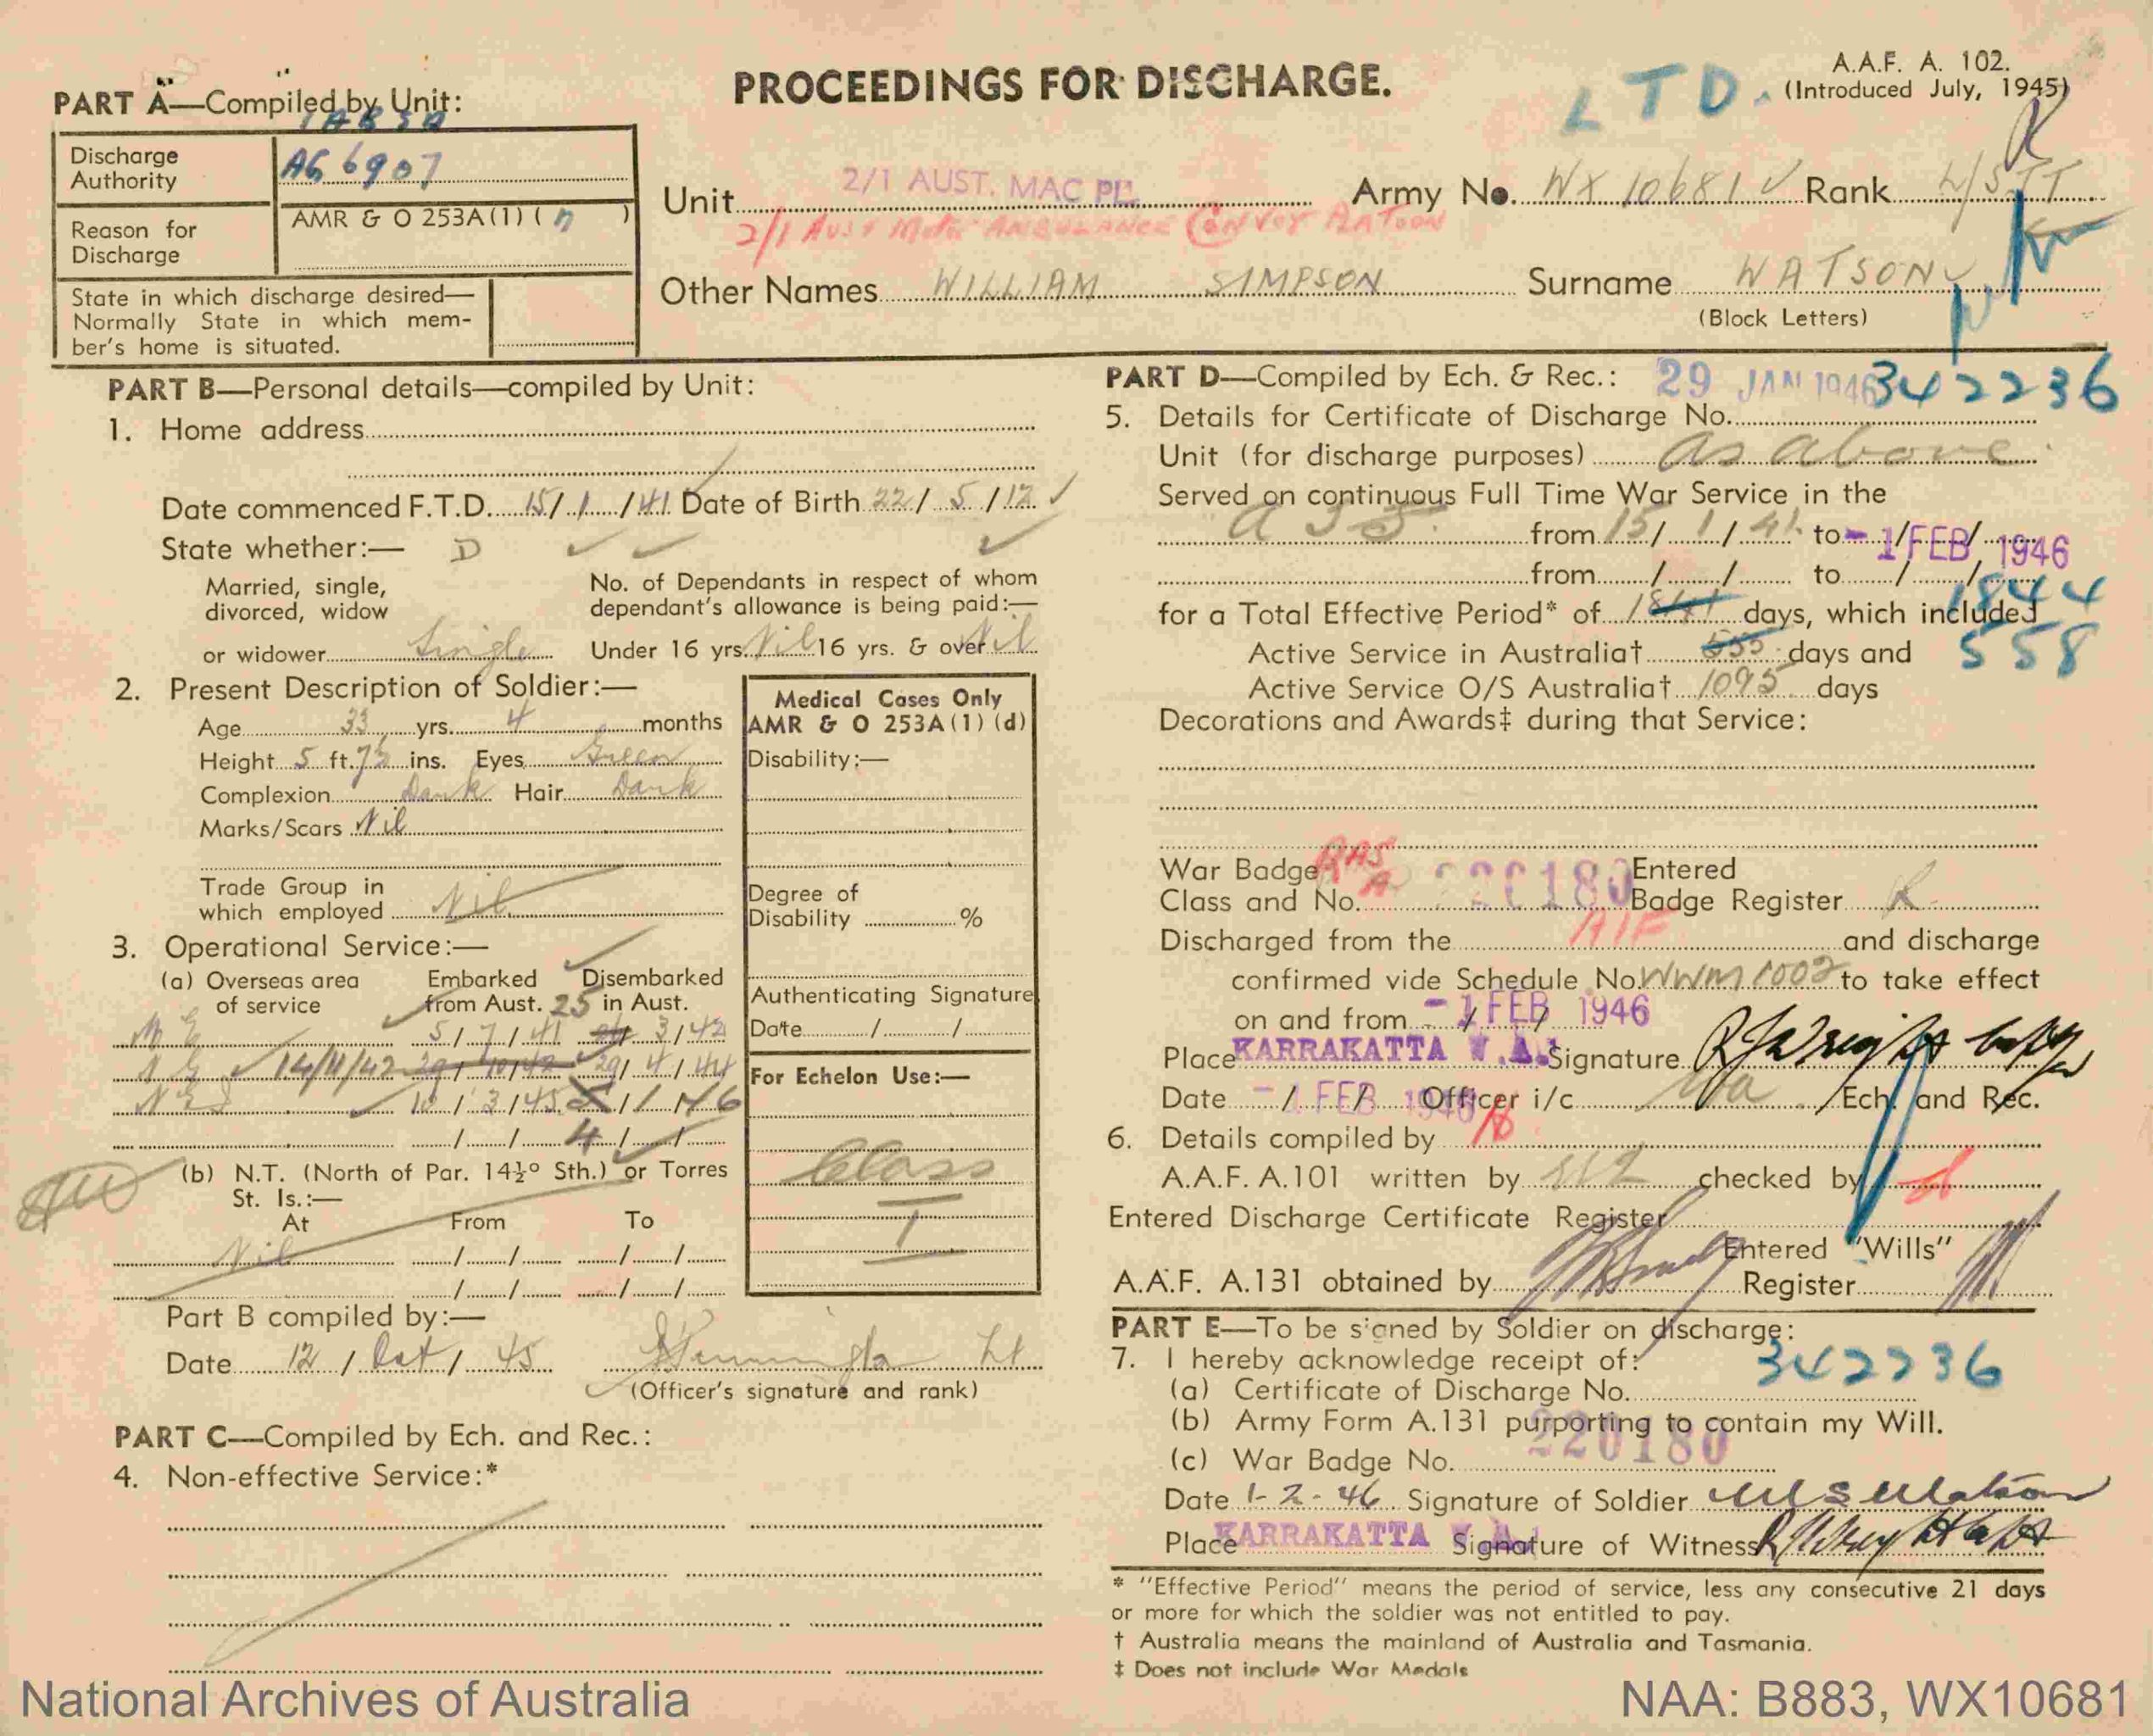 PROCEEDINGS FOR DISCHARGE.
A.A.F. A. 102.
(Introduced July, 1945)
LTD.
PART A—Compiled by Unit:
Discharge Authority AG 6907
Reason for Discharge AMR & O 253A(1) ( n )
State in which discharge desired—
Normally State in which mem-
ber's home is situated.
Unit 2/1 AUST. MAC PL. Army No. WX 10681 Rank
2/1 AUST MOTOR AMBULANCE CONVOY PLATOON
Other Names WILLIAM SIMPSON Surname WATSON
(Block Letters)
PART B—Personal details—compiled by Unit:
1. Home address
Date commenced F.T.D. 15/1/41 Date of Birth 22/5/12
State whether:— D
Married, single,
divorced, widow
or widower Single
No. of Dependants in respect of whom
dependant's allowance is being paid:—
Under 16 yrs. Nil 16 yrs. & over Nil
2. Present Description of Soldier:—
Age 33 yrs. 4 months
Height 5 ft. 7½ ins. Eyes Green
Complexion Dark Hair Dark
Marks/Scars Nil
Trade Group in
which employed Nil
Medical Cases Only
AMR & O 253A(1) (d)
Disability:—
Degree of
Disability %
Authenticating Signature
Date / /
For Echelon Use:—
Class
I
3. Operational Service:—
(a) Overseas area of service Embarked from Aust. Disembarked in Aust.
M E 5/7/41 25 3/42
N G 14/11/42 29/10/42 29/4/44
10/3/45 /1/46
/ / 4 / /
(b) N.T. (North of Par. 14½° Sth.) or Torres
St. Is.:—
At From To
Nil / / / /
/ / / /
Part B compiled by:—
Date 12/Oct/45 Lt
(Officer's signature and rank)
PART C—Compiled by Ech. and Rec.:
4. Non-effective Service:*
PART D—Compiled by Ech. & Rec.: 29 JAN 1946 342236
5. Details for Certificate of Discharge No.
Unit (for discharge purposes) as above
Served on continuous Full Time War Service in the
from 15/1/41 to -1 FEB 1946
from / / to / /
for a Total Effective Period* of 1841 days, which included 1844
Active Service in Australia† 555 days and 558
Active Service O/S Australia† 1095 days
Decorations and Awards‡ during that Service:
War Badge RAS A
Class and No. 220180
Entered
Badge Register
Discharged from the AIF and discharge
confirmed vide Schedule No. WWM 1002 to take effect
on and from -1 FEB 1946
Place KARRAKATTA W.A. Signature
Date -1 FEB 1946 Officer i/c Wa Ech. and Rec.
6. Details compiled by
A.A.F. A.101 written by checked by
Entered Discharge Certificate Register
A.A.F. A.131 obtained by
Entered "Wills"
Register
PART E—To be signed by Soldier on discharge:
7. I hereby acknowledge receipt of:
(a) Certificate of Discharge No. 342236
(b) Army Form A.131 purporting to contain my Will.
(c) War Badge No. 220180
Date 1-2-46 Signature of Soldier WS Watson
Place KARRAKATTA W.A. Signature of Witness
* "Effective Period" means the period of service, less any consecutive 21 days
or more for which the soldier was not entitled to pay.
† Australia means the mainland of Australia and Tasmania.
‡ Does not include War Medals
National Archives of Australia
NAA: B883, WX10681